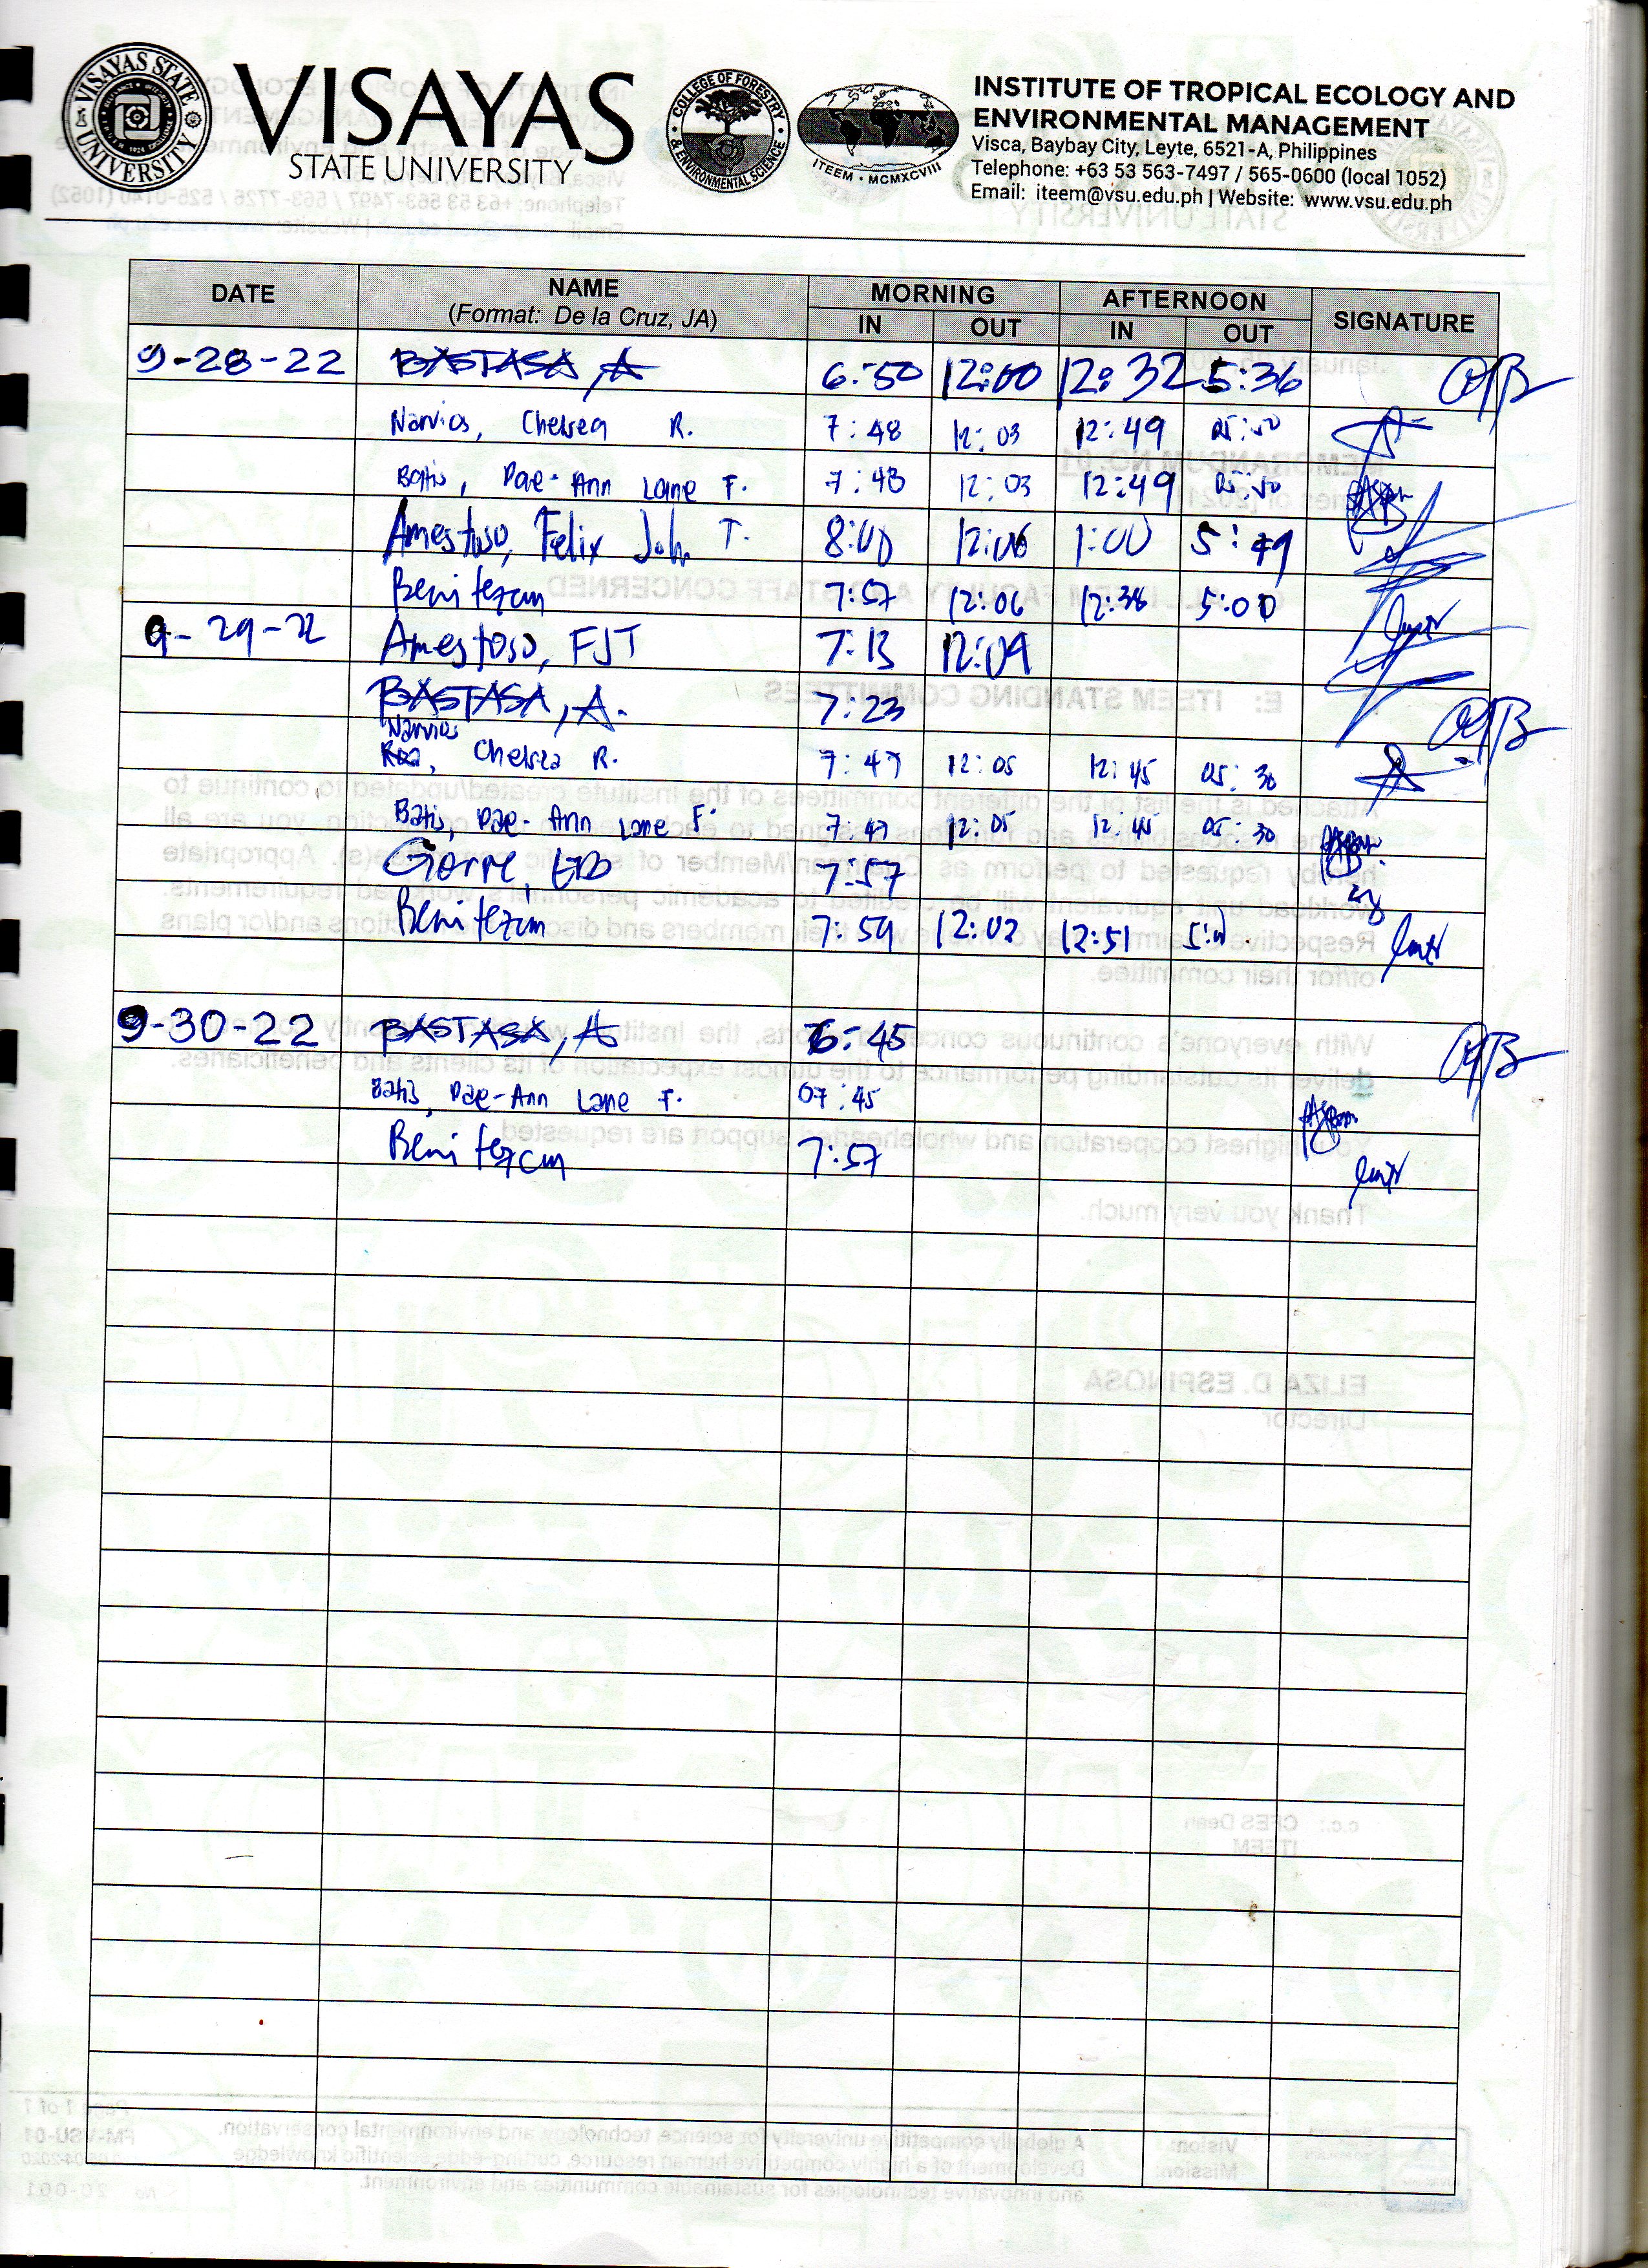 VISAYAS
STATE UNIVERSITY
VISAYAS STATE UNIVERSITY
COLLEGE OF FORESTRY & ENVIRONMENTAL SCIENCE
ITEEM • MCMXCVIII
INSTITUTE OF TROPICAL ECOLOGY AND
ENVIRONMENTAL MANAGEMENT
Visca, Baybay City, Leyte, 6521-A, Philippines
Telephone: +63 53 563-7497 / 565-0600 (local 1052)
Email: iteem@vsu.edu.ph | Website: www.vsu.edu.ph
DATE NAME MORNING AFTERNOON SIGNATURE
(Format: De la Cruz, JA) IN OUT IN OUT
9-28-22 BASTASA, A 6:50 12:00 12:32 5:36
Narvios, Chelsea R. 7:48 12:03 12:49 05:50
Batis, Dae-Ann Lane F. 7:48 12:03 12:49 05:50
Amestoso, Felix Joh. T. 8:00 12:06 1:00 5:49
Benitez cm 7:57 12:06 12:38 5:00
9-29-22 Amestoso, FJT 7:13 12:09
BASTASA, A. 7:23
Narvios
Chelsea R. 7:47 12:05 12:45 05:30
Batis, Dae-Ann Lane F. 7:47 12:05 12:45 05:30
Gorre, 7:57
Benitez cm 7:59 12:02 12:51
9-30-22 BASTASA, A 6:45
Batis, Dae-Ann Lane F. 07:45
Benitez cm 7:57